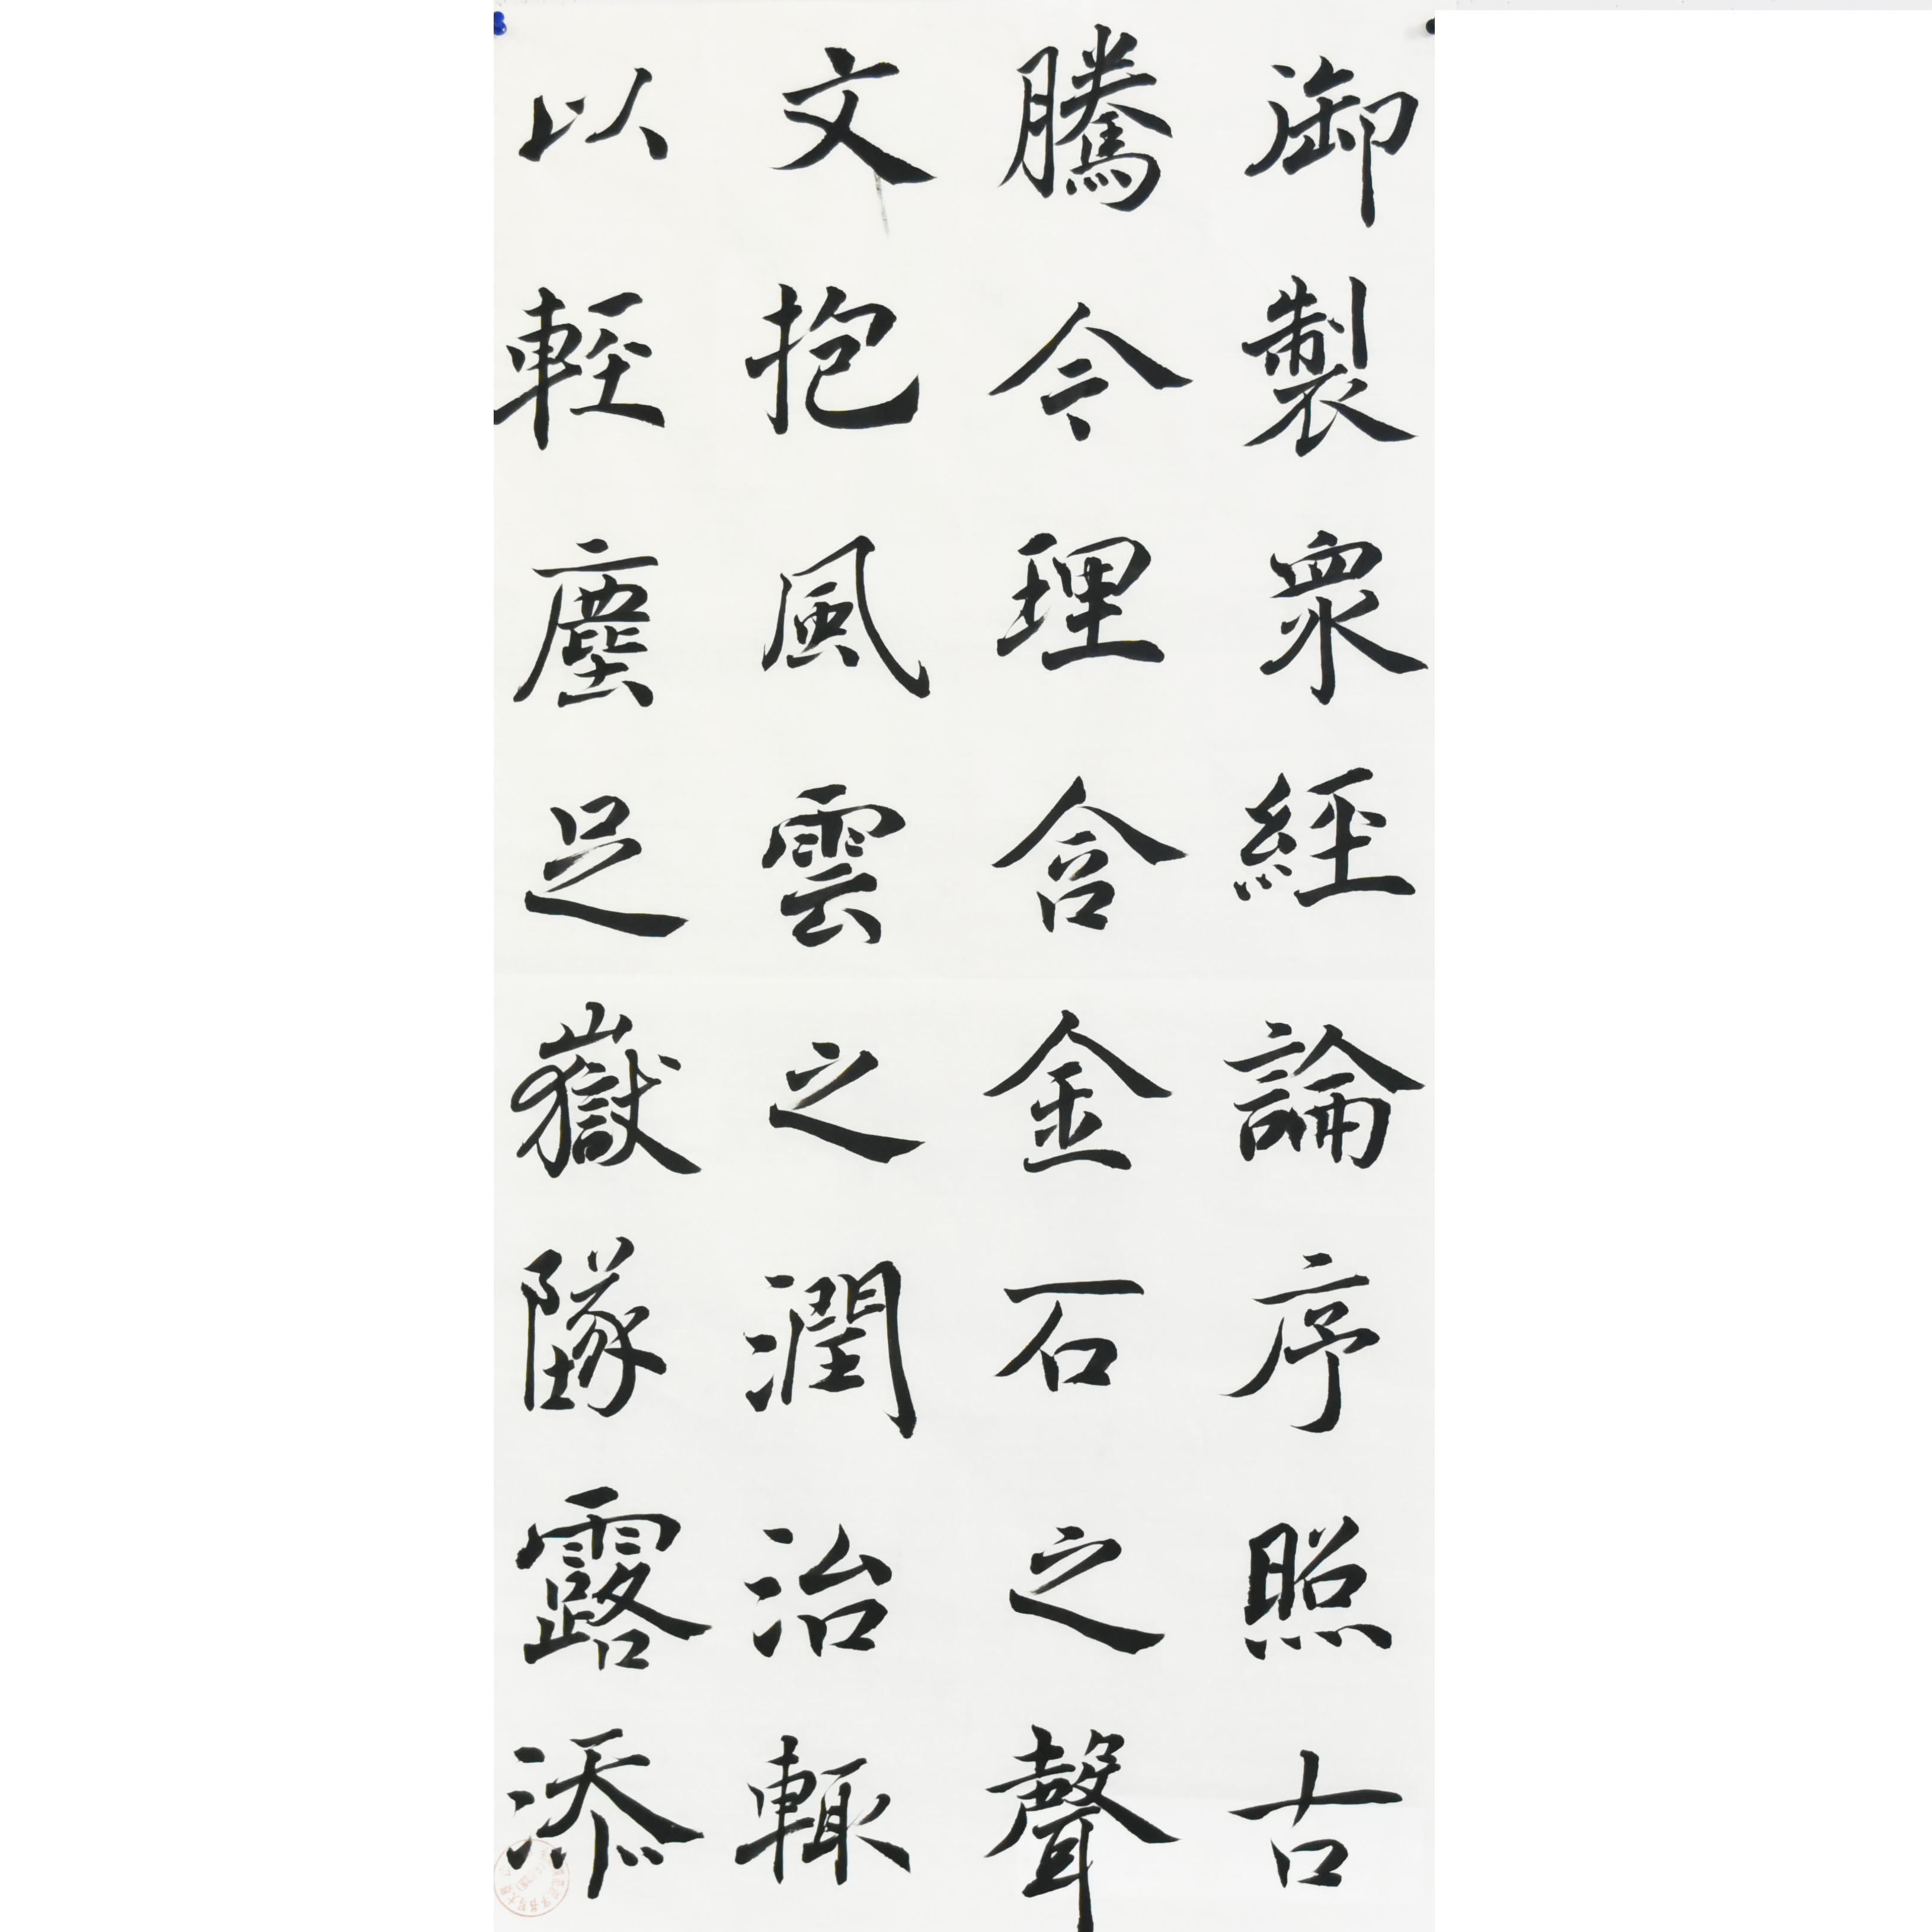 御製衆經論序照古
騰今理含金石之聲
文抱風雲之潤治輒
以輕塵足嶽墜露添